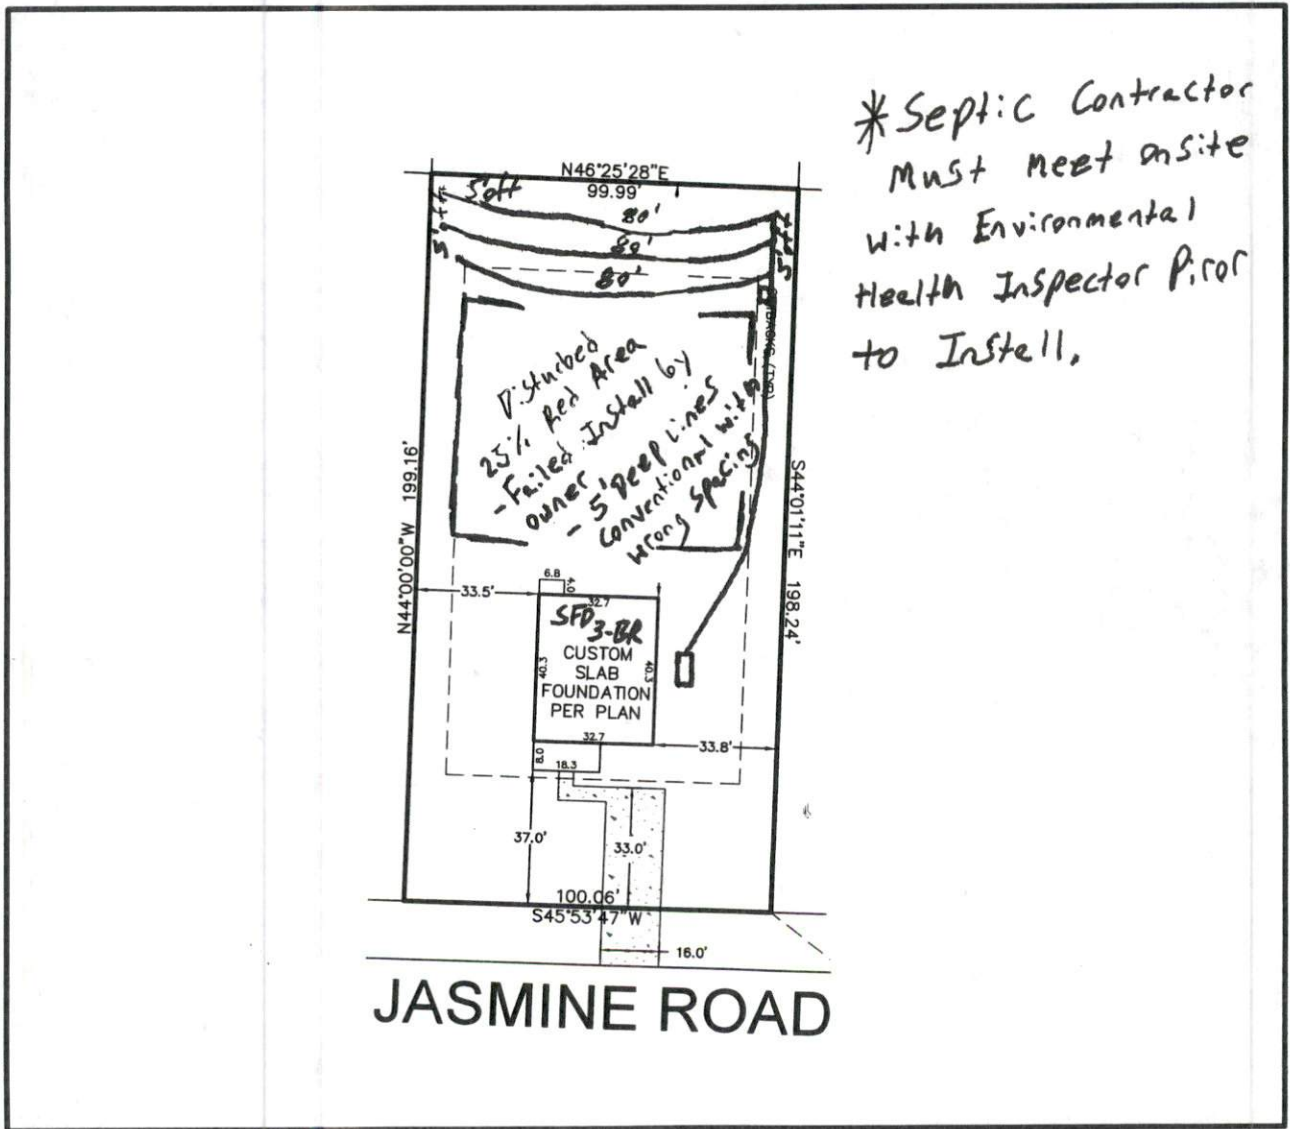 * Septic Contractor
Must meet onsite
with Environmental
Health Inspector Piror
to Install.
N46°25'28"E
99.99'
5'off
80'
80'
80'
5'off
5'off
Disturbed
25% Red Area
- Failed Install by
owner
- 5' Deep Lines
conventional with
wrong spacing
N44°00'00"W 199.16'
S44°01'11"E 198.24'
33.5'
6.8
4.0
32.7
SFD
3-BR
CUSTOM
SLAB
FOUNDATION
PER PLAN
40.3
40.3
32.7
33.8'
8.0
18.3
37.0'
33.0'
100.06'
S45°53'47"W
16.0'
JASMINE ROAD